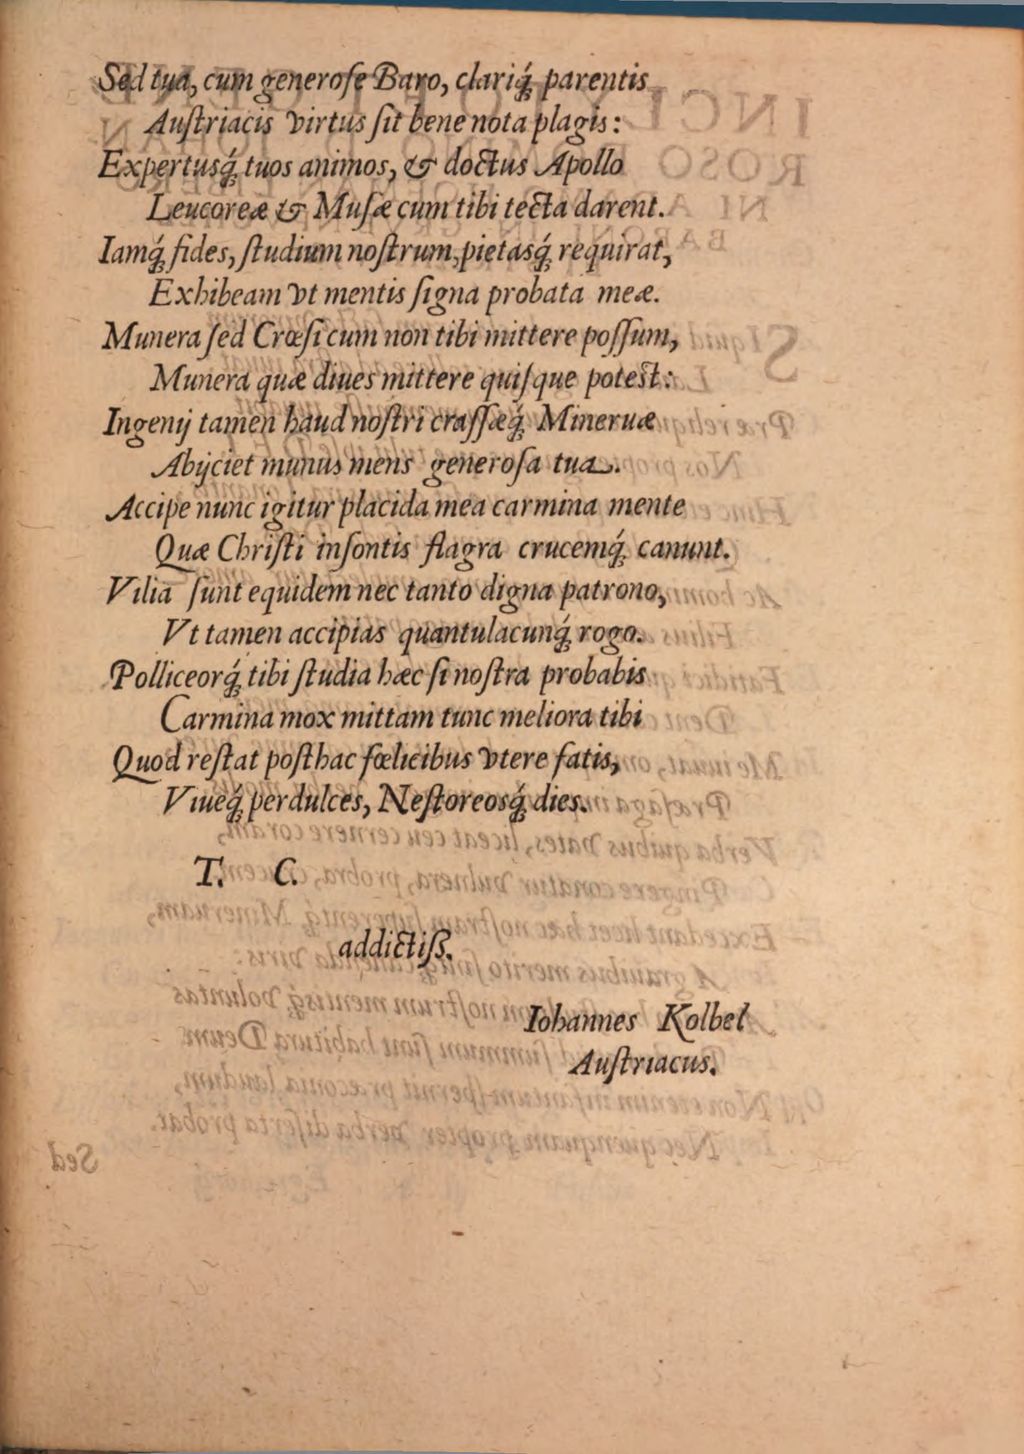 Sed tua, cum generoſe Baro, clariq́; parentis
Auſtriacis virtus ſit bene nota plagis:
Expertusq́; tuos animos, & doctus Apollo
Leucoreæ & Muſæ cum tibi tecta darent.
Iamq́; fides, ſtudium noſtrum, pietasq́; requirat,
Exhibeam vt mentis ſigna probata meæ.
Munera ſed Crœſi cum non tibi mittere poſſum,
Munera quæ diues mittere quiſque poteſt:
Ingenij tamen haud noſtri craſſæq́; Mineruæ
Abijciet munus mens generoſa tua.
Accipe nunc igitur placida mea carmina mente
Quæ Chriſti inſontis flagra crucemq́; canunt.
Vilia ſunt equidem nec tanto digna patrono,
Vt tamen accipias quantulacunq́; rogo.
Polliceorq́; tibi ſtudia hæc ſi noſtra probabis
Carmina mox mittam tunc meliora tibi
Quod reſtat poſthac fœlicibus vtere fatis,
Viueq́; perdulces, Neſtoreosq́; dies.
T. C.
addictiſſ.
Iohannes Kolbel
Auſtriacus.